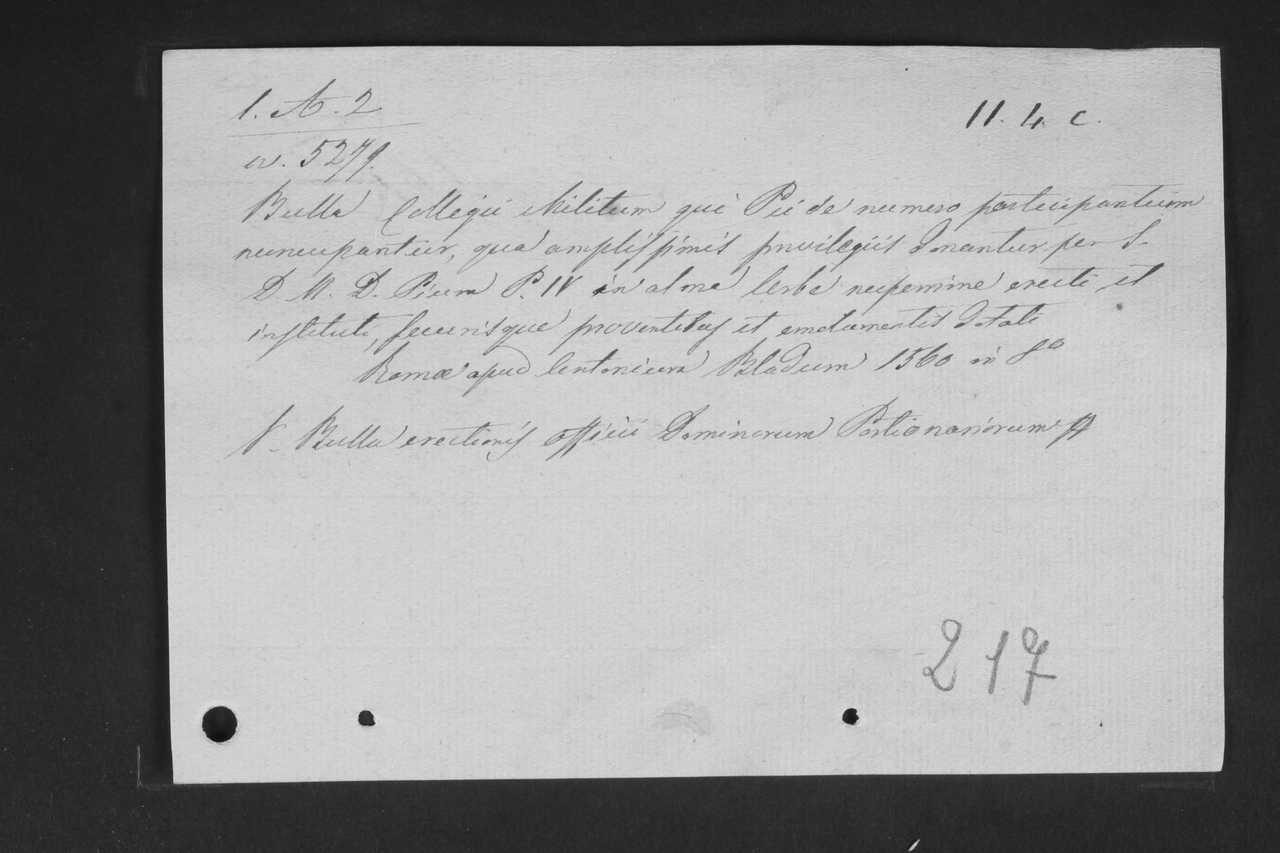 1. A. 2
11. 4. c.
N. 5279.
Bulla Collegii Militum qui Pii de numero participantium
nuncupantur, qua amplissimis privilegiis donantur per S.
D. N. D. Pium P. IV in alma Urbe nuperrime erecti et
instituti, securisque proventibus et emolumentis dotati
Romæ apud Antonium Bladum 1560 in 8º
V. Bulla erectionis officii Dominorum Portionariorum
217